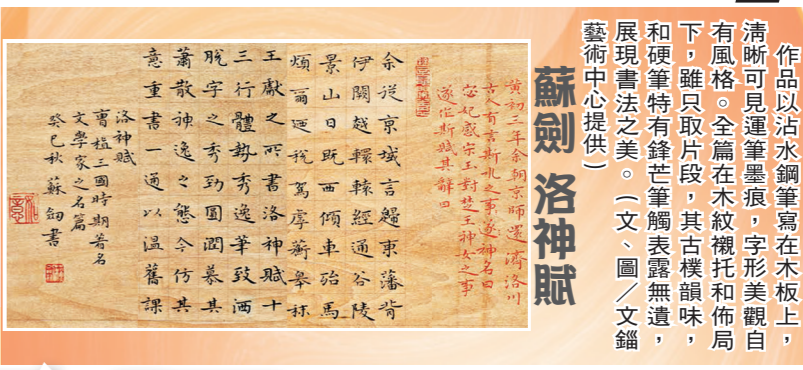 作品以沾水鋼筆寫在木板上，
清晰可見運筆墨痕，字形美觀自
有風格。全篇在木紋襯托和佈局
下，雖只取片段，其古樸韻味，
和硬筆特有鋒芒筆觸表露無遺，
展現書法之美。（文、圖／文錙
藝術中心提供）
蘇劍 洛神賦
黃初三年余朝京師還濟洛川
古人有言斯水之事遂神名曰
宓妃感宋玉對楚王神女之事
遂作斯賦其辭曰
余從京域言歸東藩背
伊闕越轘轅經通谷陵
景山日既西傾車殆馬
煩爾迺稅駕虖蘅皋秣
王獻之所書洛神賦十
三行體勢秀逸筆致洒
脫字之秀勁圓潤慕其
蕭散神逸之態今仿其
意重書一通以溫舊課
洛神賦
曹植三國時期著名
文學家之名篇
癸巳秋 蘇 書